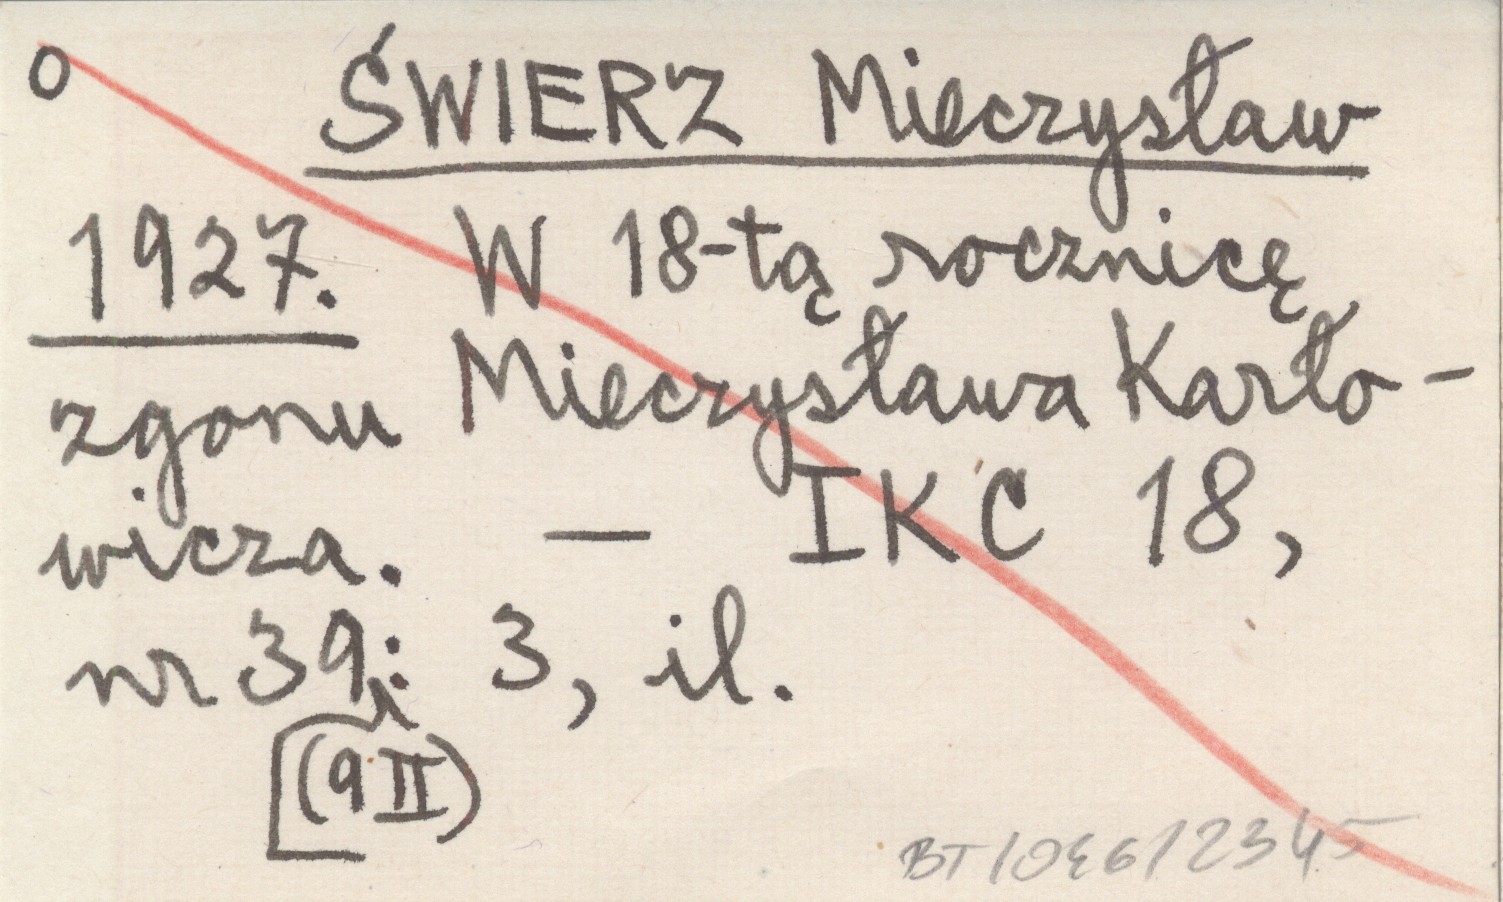 O ŚWIERZ Mieczysław
1927. W 18-tą rocznicę
zgonu Mieczysława Karło-
wicza. — IKC 18,
nr 39: 3, il.
(9 II)